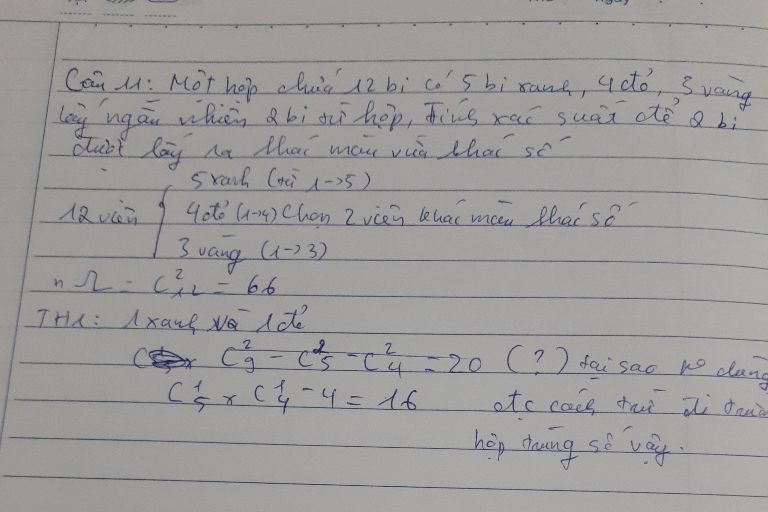 Câu 11: Một hộp chứa 12 bi có 5 bi xanh, 4 đỏ, 3 vàng
lấy ngẫu nhiên 2 bi từ hộp, tính xác suất để 2 bi
được lấy ra khác màu vừa khác số
5 xanh (từ 1->5)
12 viên { 4 đỏ (1->4) Chọn 2 viên khác màu khác số
3 vàng (1->3)
n Ω = C²₁₂ = 66
TH1: 1 xanh và 1 đỏ
C²₉ - C²₅ - C²₄ = 20 (?) tại sao ko dùng
C¹₅ x C¹₄ - 4 = 16 đc cách trừ đi
hợp trùng số vậy.